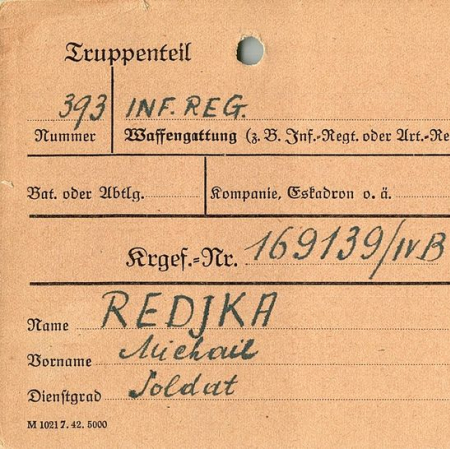 Truppenteil
393 INF. REG.
Nummer Waffengattung (z. B. Inf.-Regt. oder Art.-Re
Bat. oder Abtlg. Kompanie, Eskadron o. ä.
Krgef.-Nr. 169139/IVB
Name REDJKA
Vorname Michail
Dienstgrad Soldat
M 1021 7. 42. 5000